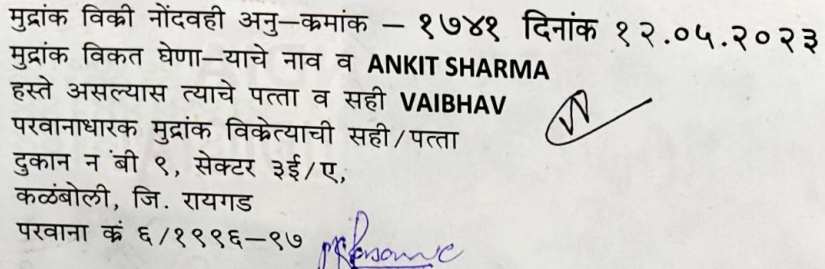 मुद्रांक विक्री नोंदवही अनु–क्रमांक – १७४१ दिनांक १२.०५.२०२३
मुद्रांक विकत घेणा–याचे नाव व ANKIT SHARMA
हस्ते असल्यास त्याचे पत्ता व सही VAIBHAV
परवानाधारक मुद्रांक विक्रेत्याची सही/पत्ता
दुकान न बी ९, सेक्टर ३ई/ए,
कळंबोली, जि. रायगड
परवाना क्रं ६/१९९६–९७